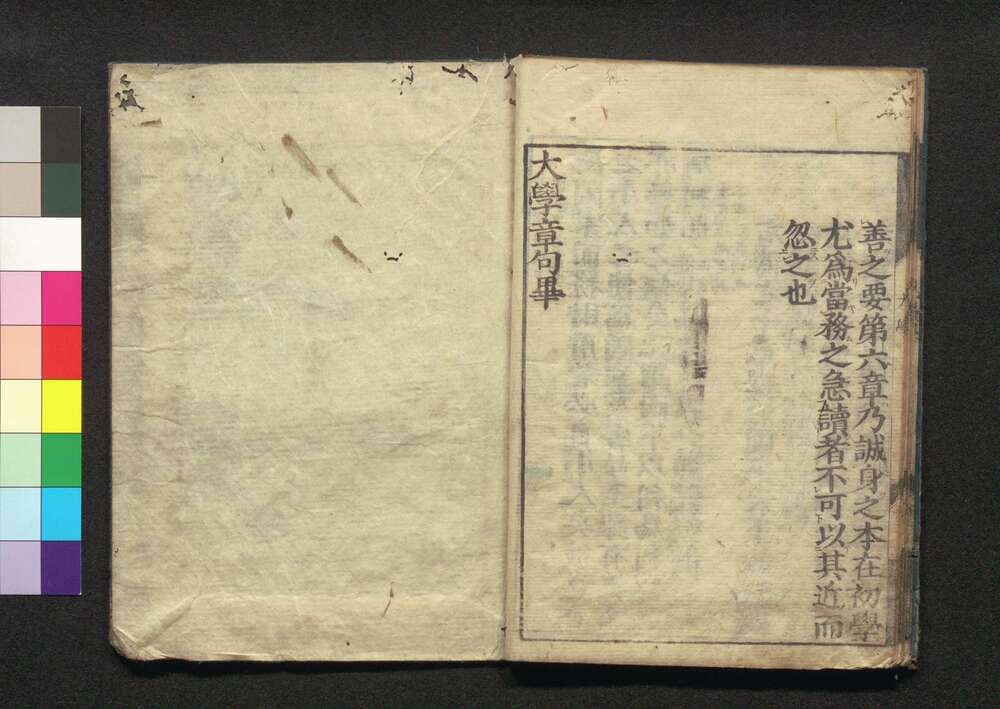 善之要第六章乃誠身之本在初學
尤爲當務之急讀者不可以其近而
忽之也
大學章句畢